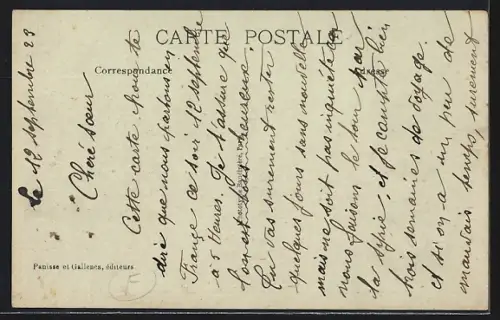 CARTE POSTALE
Correspondance
Adresse
Panisse et Gallenca, éditeurs
Le 12 septembre 23
Chère sœur
Cette carte pour te
dire que nous partons
France ce soir 12 septembre
à 5 Heures. Je t'assure que
l'on est heureuse.
Tu vas surement rester
quelques jours sans nouvelle
mais ne soit pas inquiète car
nous faisons le tour par
la Syrie, et je compte bien
trois semaines de voyage.
et si on a un peu de
mauvais temps, surement